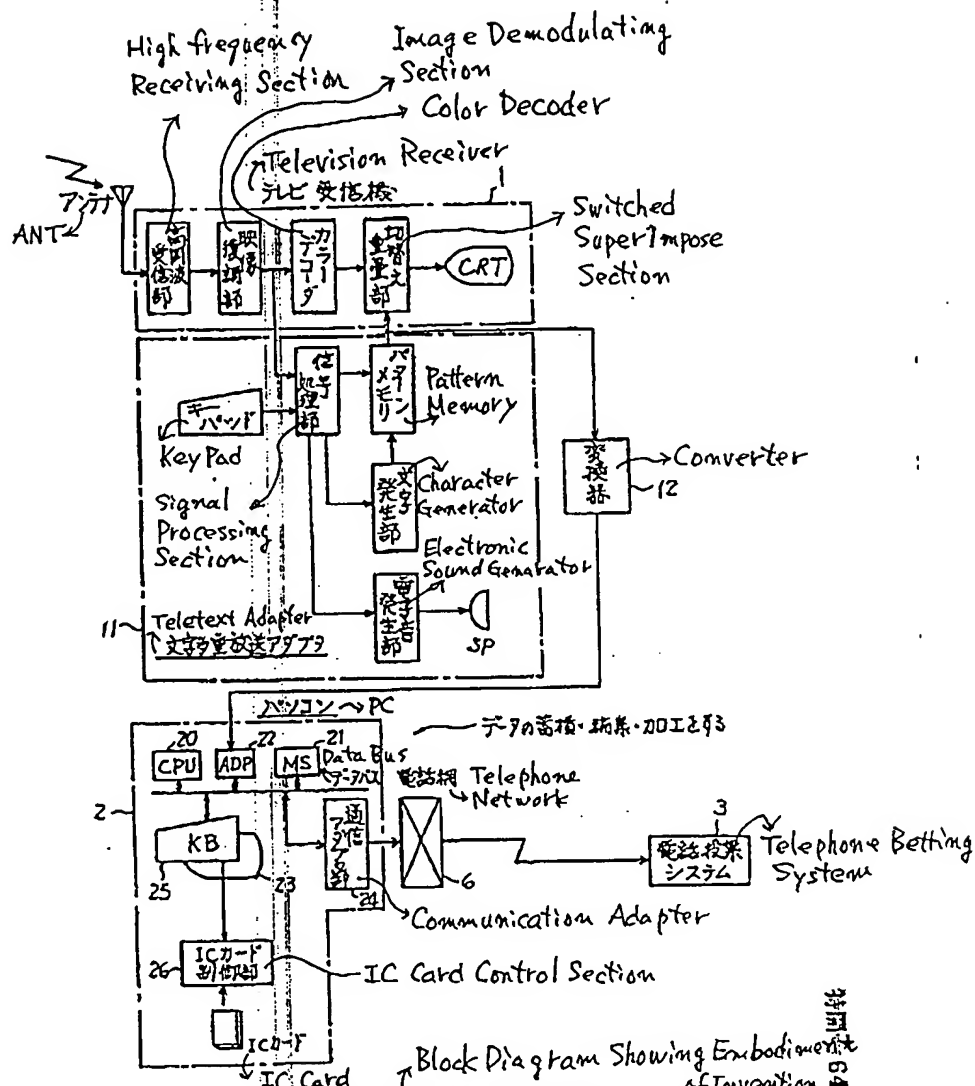 High frequency
Receiving Section
Image Demodulating
Section
Color Decoder
Television Receiver
テレビ受信機
1
アンテナ
ANT
高周波
受信部
映像
復調部
カラー
デコーダ
切替え
重畳部
CRT
Switched
SuperImpose
Section
キー
パッド
KeyPad
信号
処理部
パターン
メモリ
Pattern
Memory
Signal
Processing
Section
文字
発生部
Character
Generator
変換器
Converter
12
Electronic
Sound Genarator
電子音
発生部
SP
11
Teletext Adapter
文字多重放送アダプタ
パソコン
PC
データの蓄積・編集・加工をする
20
22
21
CPU
ADP
MS
Data Bus
データバス
電話網
Telephone
Network
2
KB
25
23
通信
アダプタ部
24
6
3
電話投票
システム
Telephone Betting
System
Communication Adapter
ICカード
制御部
26
IC Card Control Section
ICカード
IC Card
Block Diagram Showing Embodiment
of Invention
64